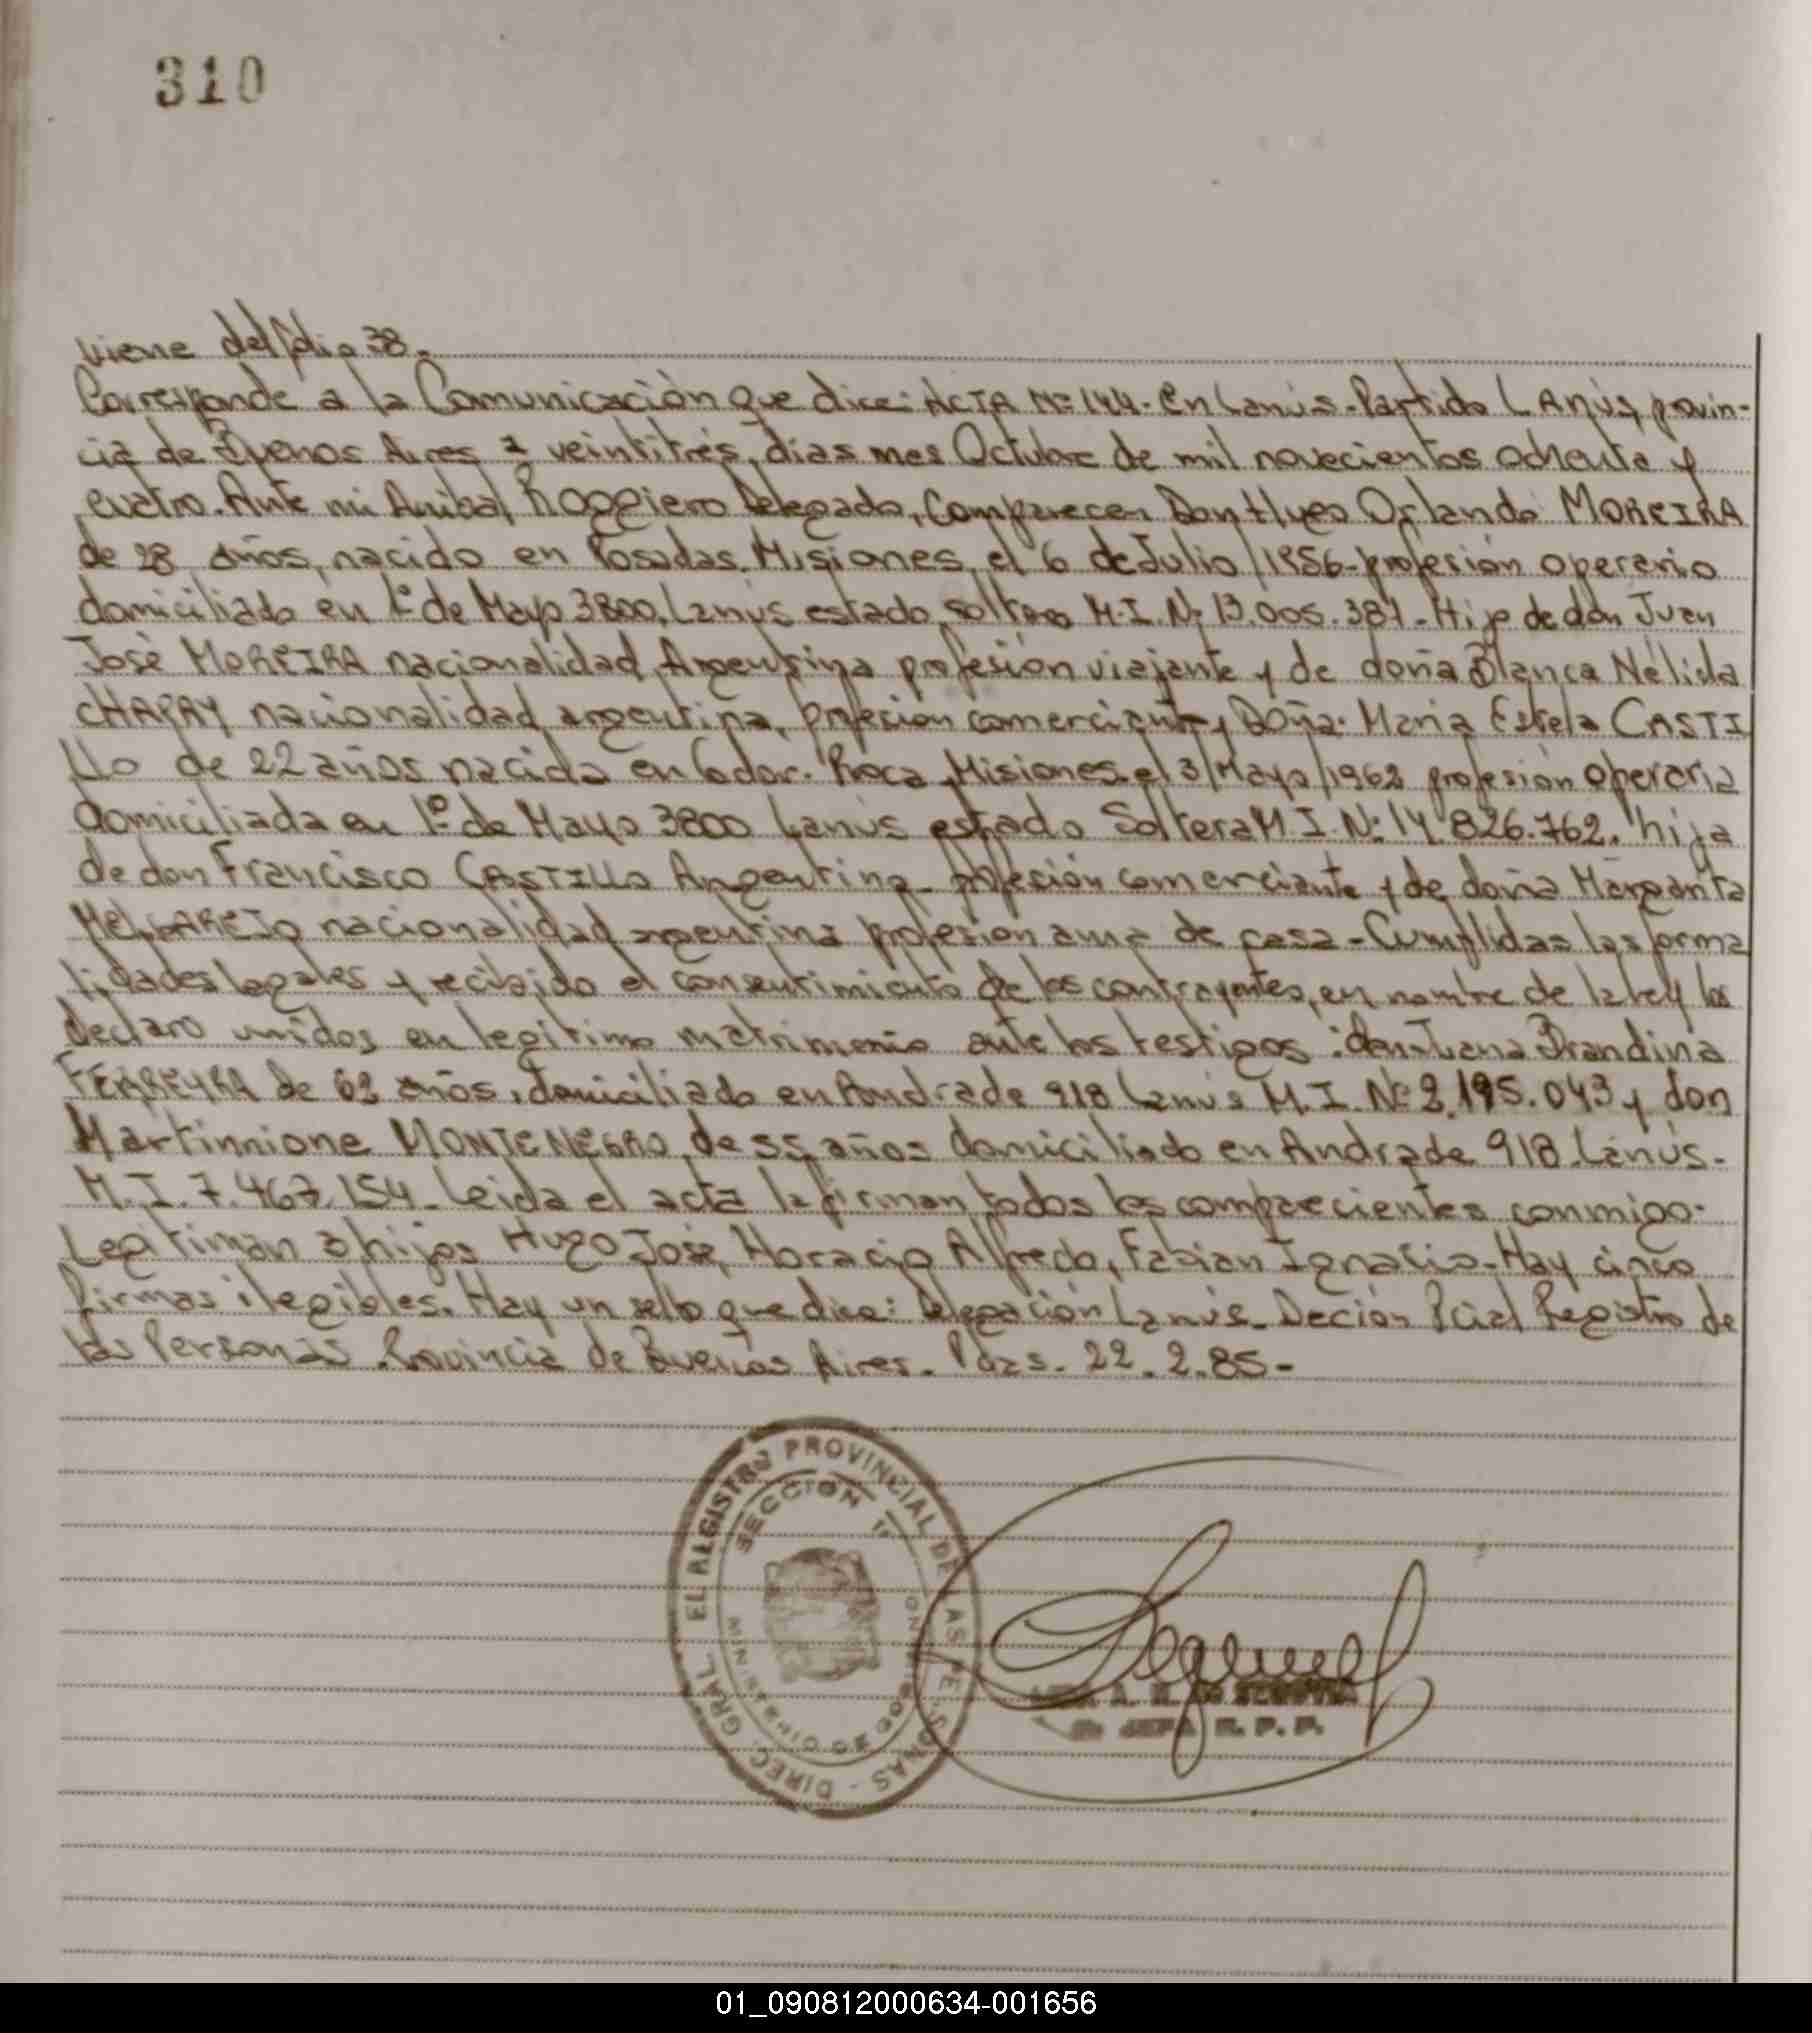 310
viene del folio 38.
Corresponde a la Comunicación que dice: ACTA Nº 144. En Lanús. Partido LANÚS, provin-
cia de Buenos Aires a veintitrés, dias mes Octubre de mil novecientos ochenta y
cuatro. Ante mi Anibal Roggiero Delegado, Comparecen Don Hugo Orlando MOREIRA
de 28 años, nacido en Posadas. Misiones, el 6 de Julio/1956-profesión operario
domiciliado en 1º de Mayo 3800, Lanús estado soltero M.I. Nº 13.005.381. Hijo de don Juan
José MOREIRA nacionalidad Argentina profesión viajante y de doña Blanca Nélida
nacionalidad argentina, profesión comerciante y Doña. Maria Estela CASTI
LLo de 22 años nacida en Gdor. Roca, Misiones el 3/Mayo/1962 profesión operaria
domiciliada en 1º de Mayo 3800 Lanús estado Soltera M.I. Nº: 14.826.762. hija
de don Francisco CASTILLO Argentina profesión comerciante y de doña Margarita
MELGAREJO nacionalidad argentina profesión ama de casa-Cumplidas las forma
lidades legales y recibido el consentimiento de los contrayentes, en nombre de la ley los
declaro unidos en legitimo matrimonio ante los testigos: Juana Brandina
FERREYRA de años, domiciliado en Andrade 918 Lanús M.I. Nº 2.195.043 y don
Martinnione MONTENEGRO, de 55 años domiciliado en Andrade 918. Lanús.
M.I. 7.467.154. Leida el acta la firman todos los comparecientes conmigo.
Legitiman 3 hijos Hugo José, Horacio Alfredo, Fabian Ignacio-Hay cinco
firmas ilegibles. Hay un sello que dice: Delegación Lanús. Pcial Registro de
las Personas. Provincia de Buenos Aires. Pdas. 22.2.85-
DIREC. GRAL. EL REGISTRO PROVINCIAL DE LAS PERSONAS
SECCION
JEFA R. P. P.
01_090812000634-001656